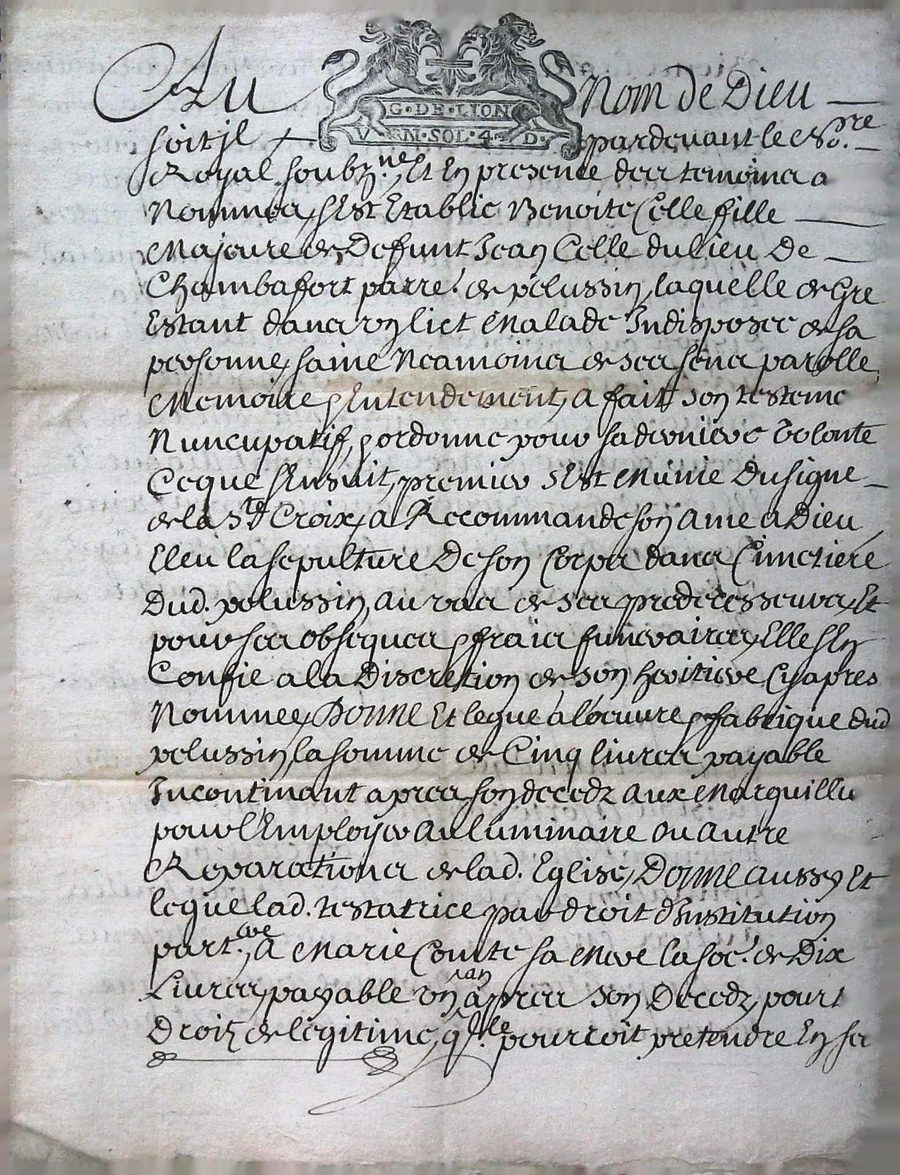 Au Nom de Dieu
G · DE · LION
V · N · M · SOL · 4 · D ·
soit jl pardevant le No.re
Royal soubz.ne, Et En presence des temoins a
Nommer, s'Est Etablie Benoite Celle fille
Majeure de Defunt Jean Celle du lieu De
Chambafort parre. de pelussin, laquelle de Gre
Estant dans vn lict Malade Indisposee de sa
personne, saine Neamoins de ses sens parolle,
Memoire & Entendement, a fait son testeme
Nuncupatif, & ordonne pour sa derniere volonte
Ce que s'Ensuit, premier s'Est Munie Du signe
de la Ste Croix, a Recommande son ame a Dieu
Eleu la sepulture De son Corps dans Cimetiere
Dud. pelussin, au vas de ses predecesseurs, Et
pour ses obseques & fraix funeraires, Elle s'En
Confie a la Discretion de son heritiere Cy apres
Nommee, Donne Et legue a l'oeuvre & fabrique dud
pelussin, la somme de Cinq livres payable
Incontinant apres son decedz aux Marguillie
pour l'Employer au luminaire ou autre
Reparations de lad. Eglise, Donne aussy Et
legue lad. testatrice par droit d'Institution
part.ere, a Marie Comte sa Mere la soe. de Dix
Livres, payable vn an apres son Decedz, pour t
Droitz de legitime, q'.lle pourroit pretendre En se